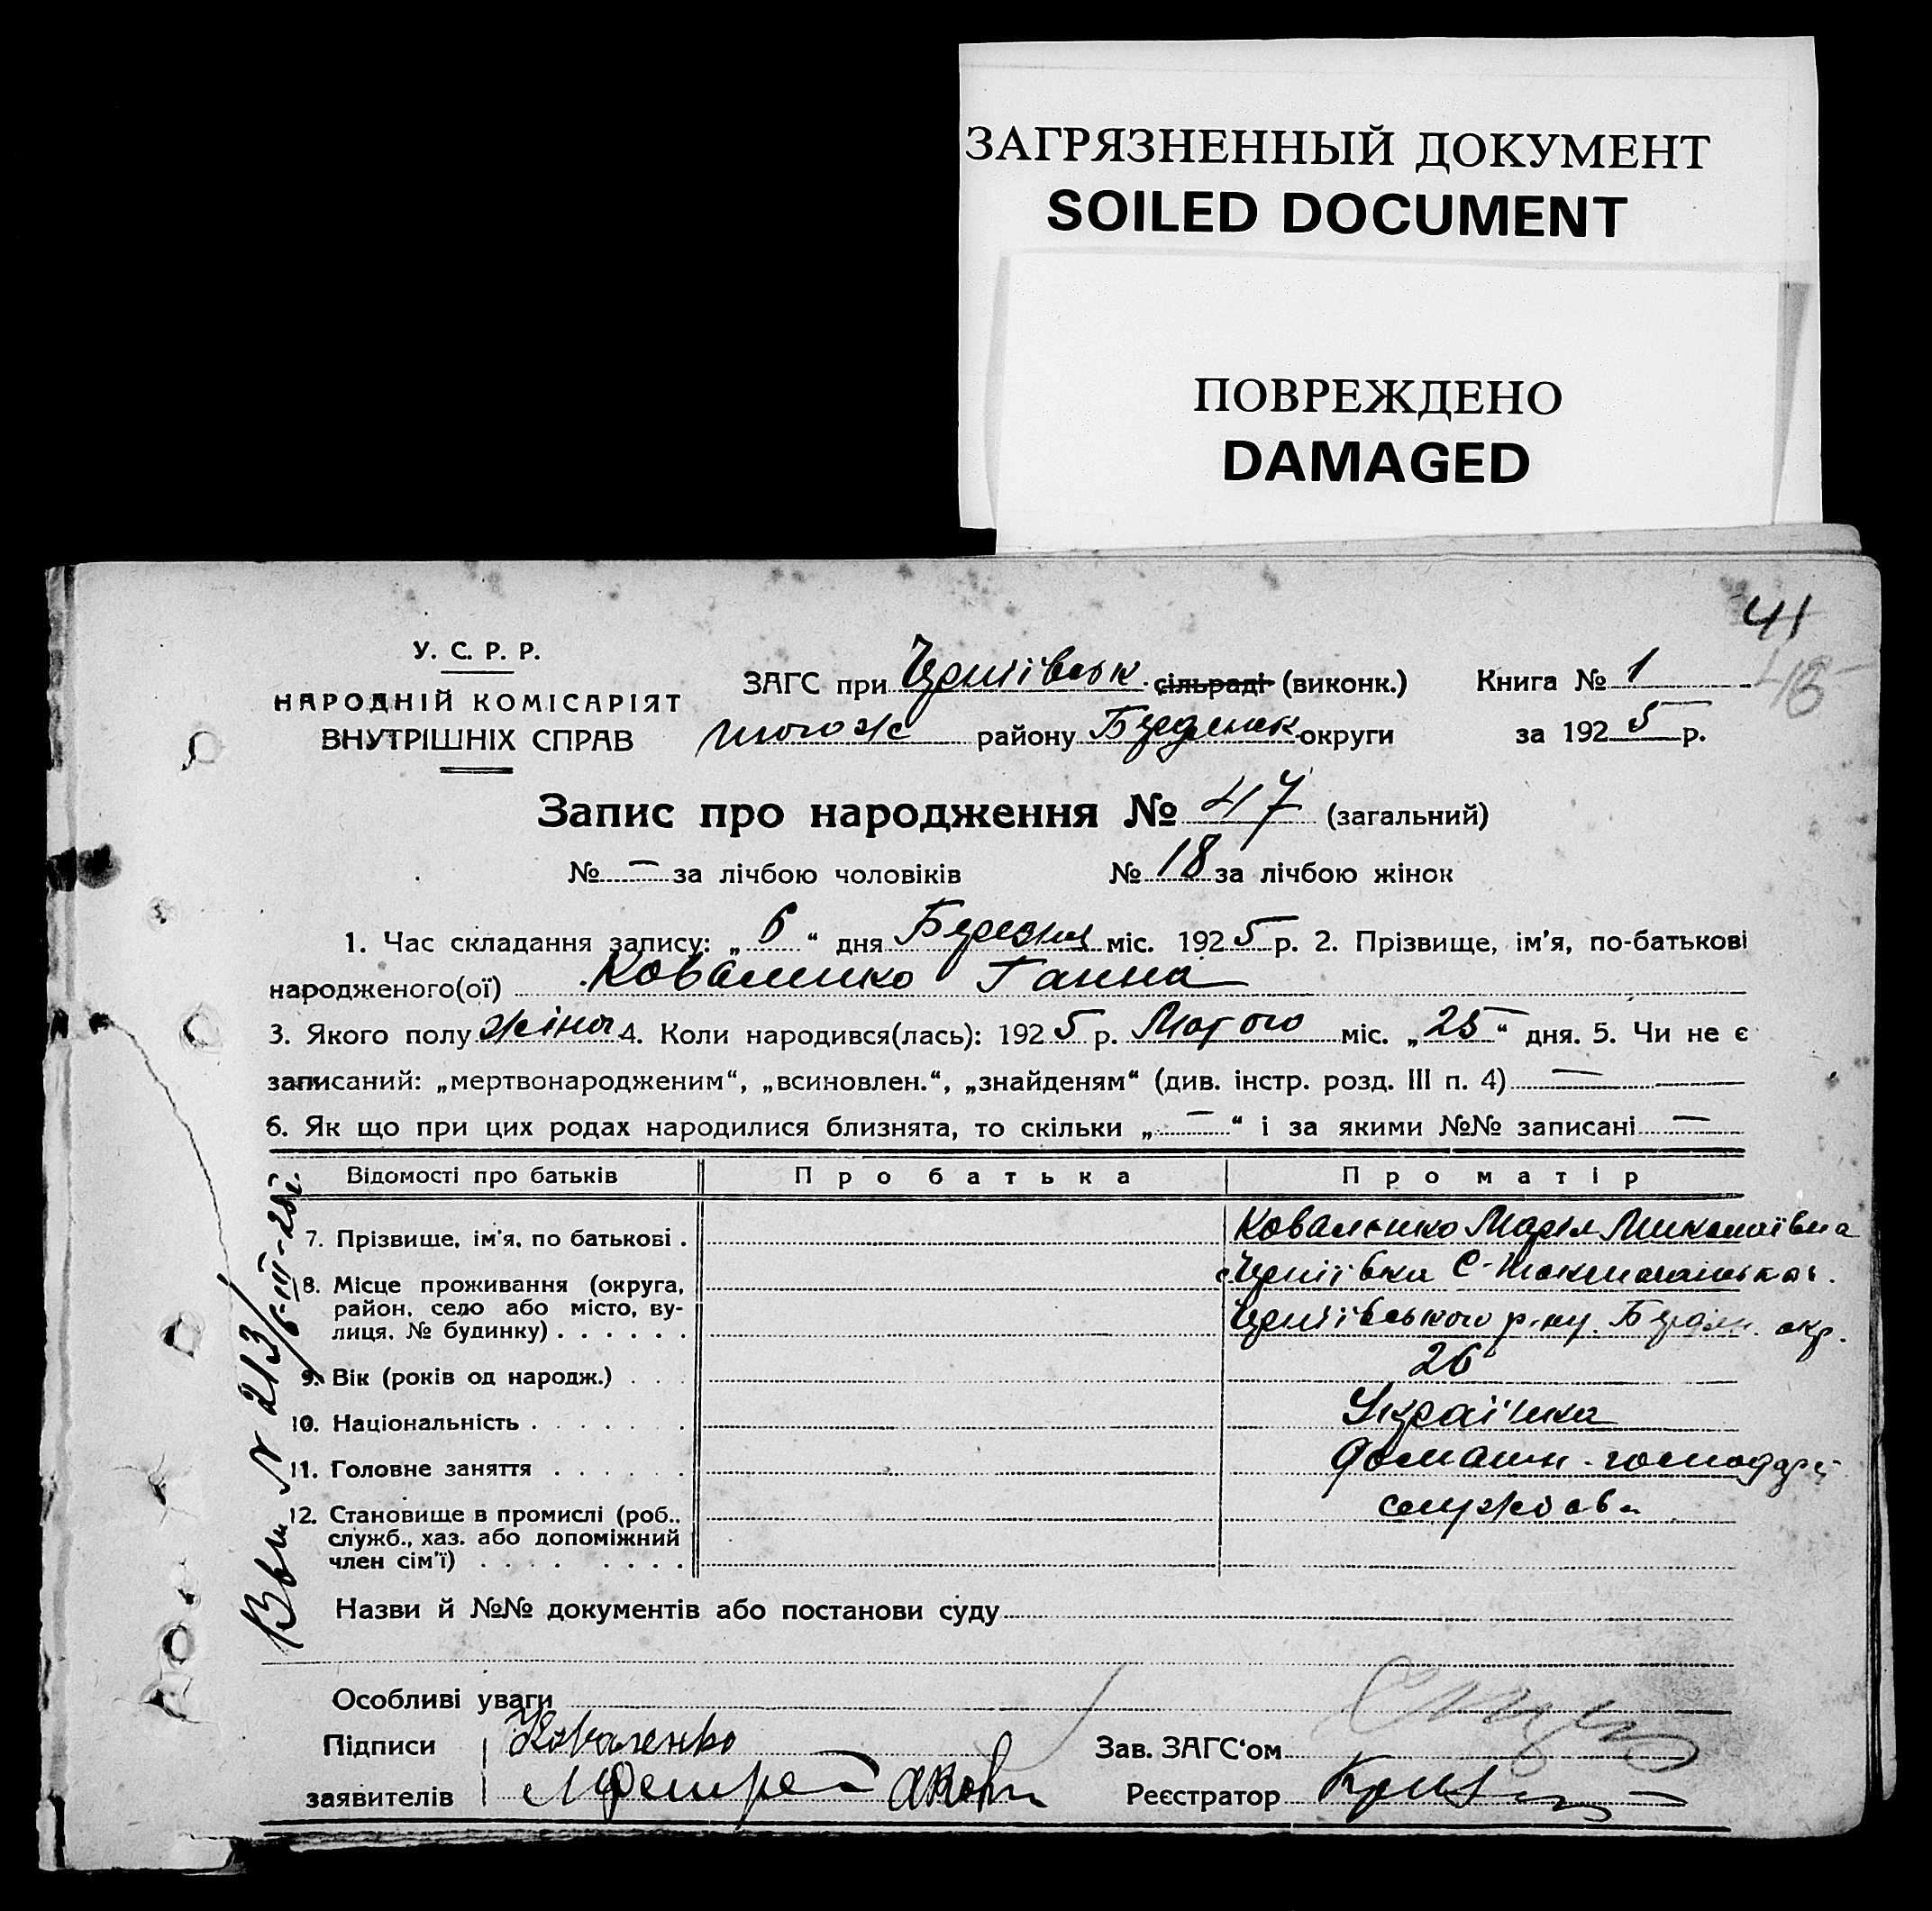 ЗАГРЯЗНЕННЫЙ ДОКУМЕНТ
SOILED DOCUMENT
ПОВРЕЖДЕНО
DAMAGED
41
У. С. Р. Р.
НАРОДНІЙ КОМІСАРІЯТ
ВНУТРІШНІХ СПРАВ
ЗАГС при Чернігівськ. сільраді (виконк.) Книга № 1
того ж району Бердянськ округи за 1925 р.
Запис про народження № 47 (загальний)
№ — за лічбою чоловіків № 18 за лічбою жінок
1. Час складання запису: „ 6 “ дня Березня міс. 1925 р. 2. Прізвище, ім'я, по-батькові
народженого(ої) Коваленко Ганна
3. Якого полу жіноч 4. Коли народився(лась): 1925 р. Лютого міс. „ 25 “ дня. 5. Чи не є
записаний: „мертвонародженим“, „всиновлен.“, „знайденям“ (див. інстр. розд. III п. 4) —
6. Як що при цих родах народилися близнята, то скільки „ — “ і за якими №№ записані —
Відомості про батьків Про батька Про матір
7. Прізвище, ім'я, по батькові . Коваленко Марія Миколаївна
8. Місце проживання (округа,
район, село або місто, ву-
лиця, № будинку) . . . . . .
9. Вік (років од народж.) . . . 26
10. Національність . . . . . . Українка
11. Головне заняття . . . . . домашн. господарс
12. Становище в промислі (роб.,
служб., хаз. або допоміжний
член сім'ї) . . . . . . . .
№ 213/6-III-25г.
Назви й №№ документів або постанови суду
Особливі уваги
Підписи Коваленко Зав. ЗАГС'ом
заявителів Реєстратор